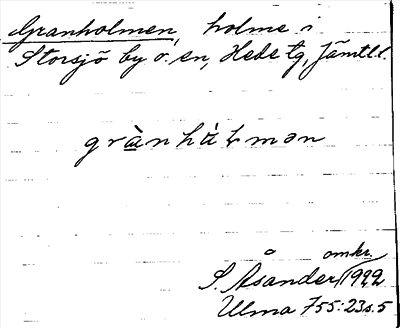 Granholmen, holme i
Storsjö by o. sn, Hede tg, Jämtl.l.
grànhàɫmən
omkr.
S. Åsander 1922
Ulma 755:23 s. 5